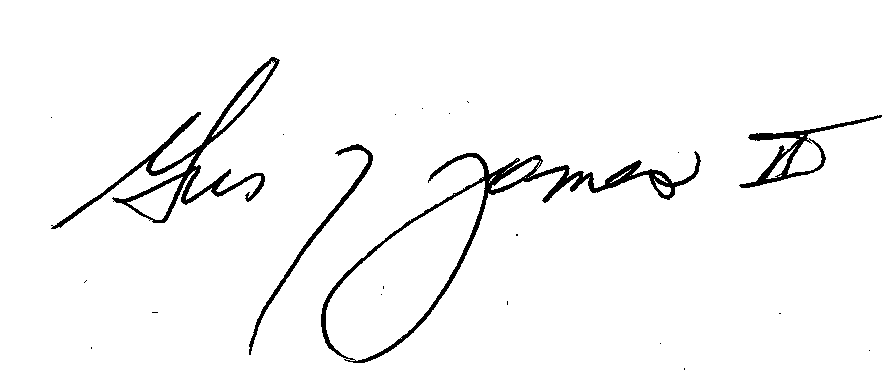 Gus J James II